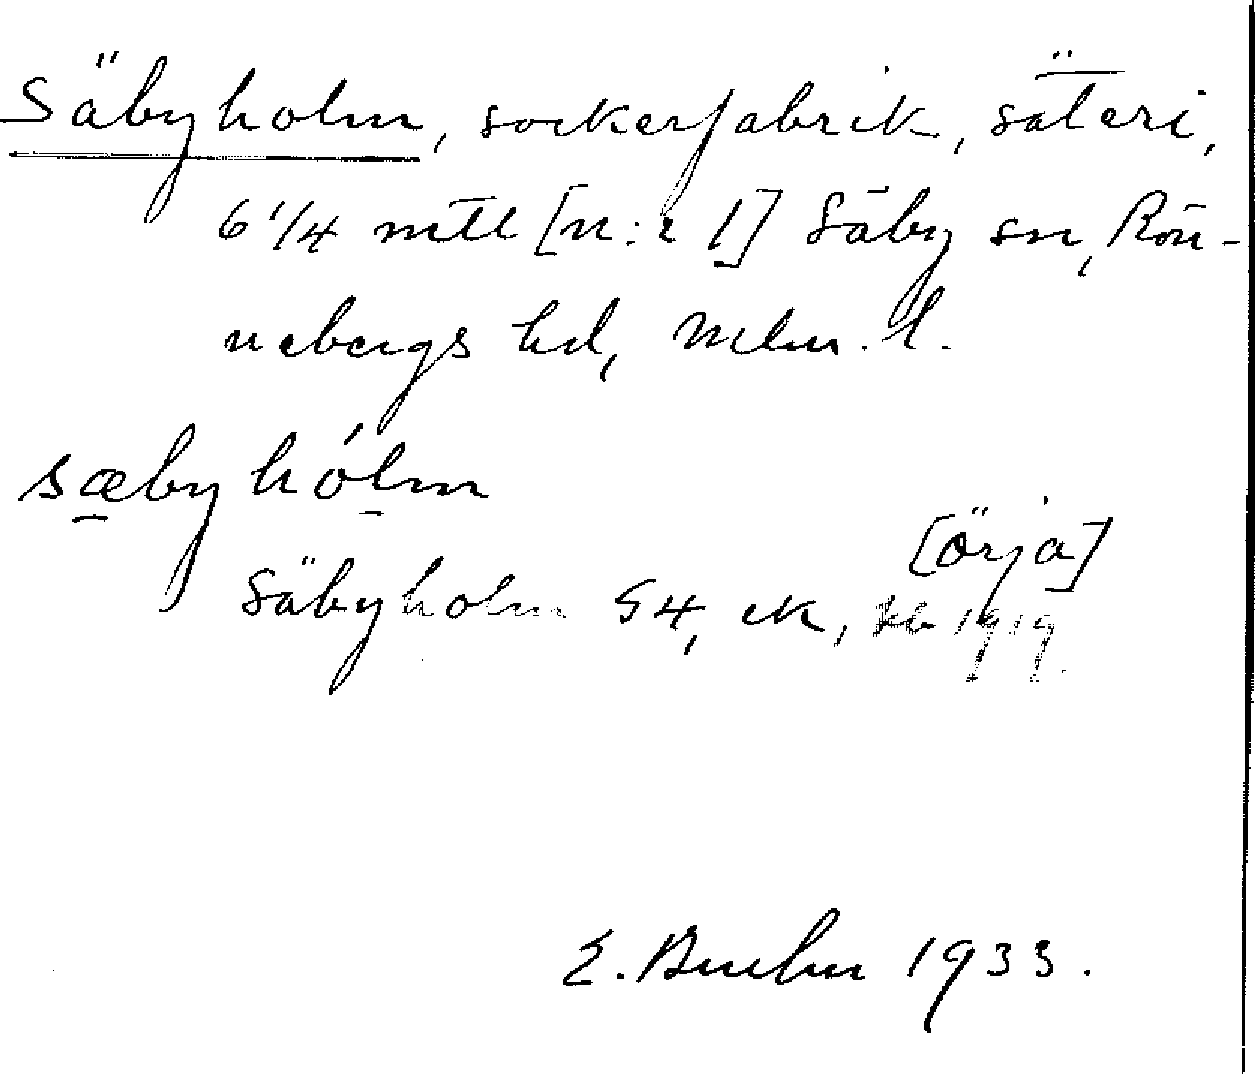 Säbyholm, sockerfabrik, säteri,
6 1/4 mtl [n:r 1] Säby sn, Rön-
nebergs hd, Mlm. l.
sæbyhólm
[Örja]
Säbyholm S4, ek, kb 1919.
E. 1933.